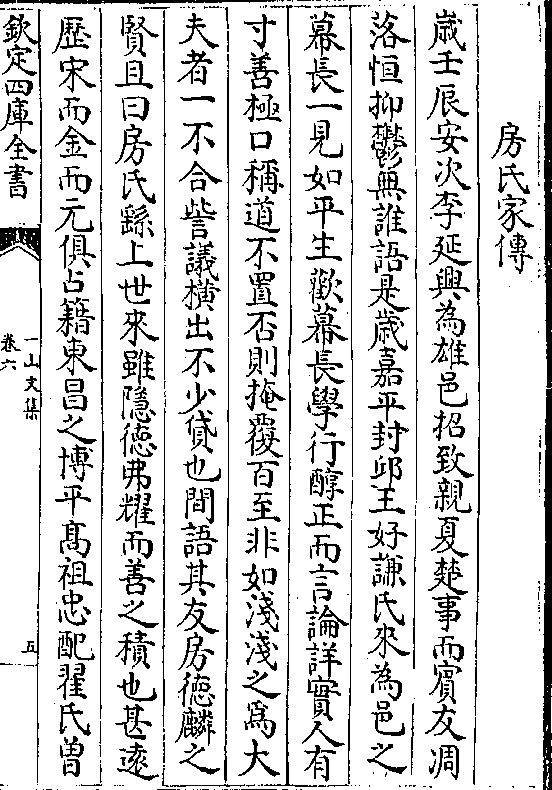 房氏家傳
歲壬辰安次李延興為雄邑招致親夏楚事而賓友凋
落恒抑鬱無誰語是歲嘉平封邱王好謙氏來為邑之
幕長一見如平生歡幕長學行醇正而言論詳實人有
寸善極口稱道不置否則掩覆百至非如淺淺之為大
夫者一不合訾議橫出不少貸也間語其友房德麟之
賢且曰房氏繇上世來雖隐德弗耀而善之積也甚遠
歴宋而金而元俱占籍東昌之博平髙祖忠配翟氏曽
欽定四庫全書
一山文集
卷六
五